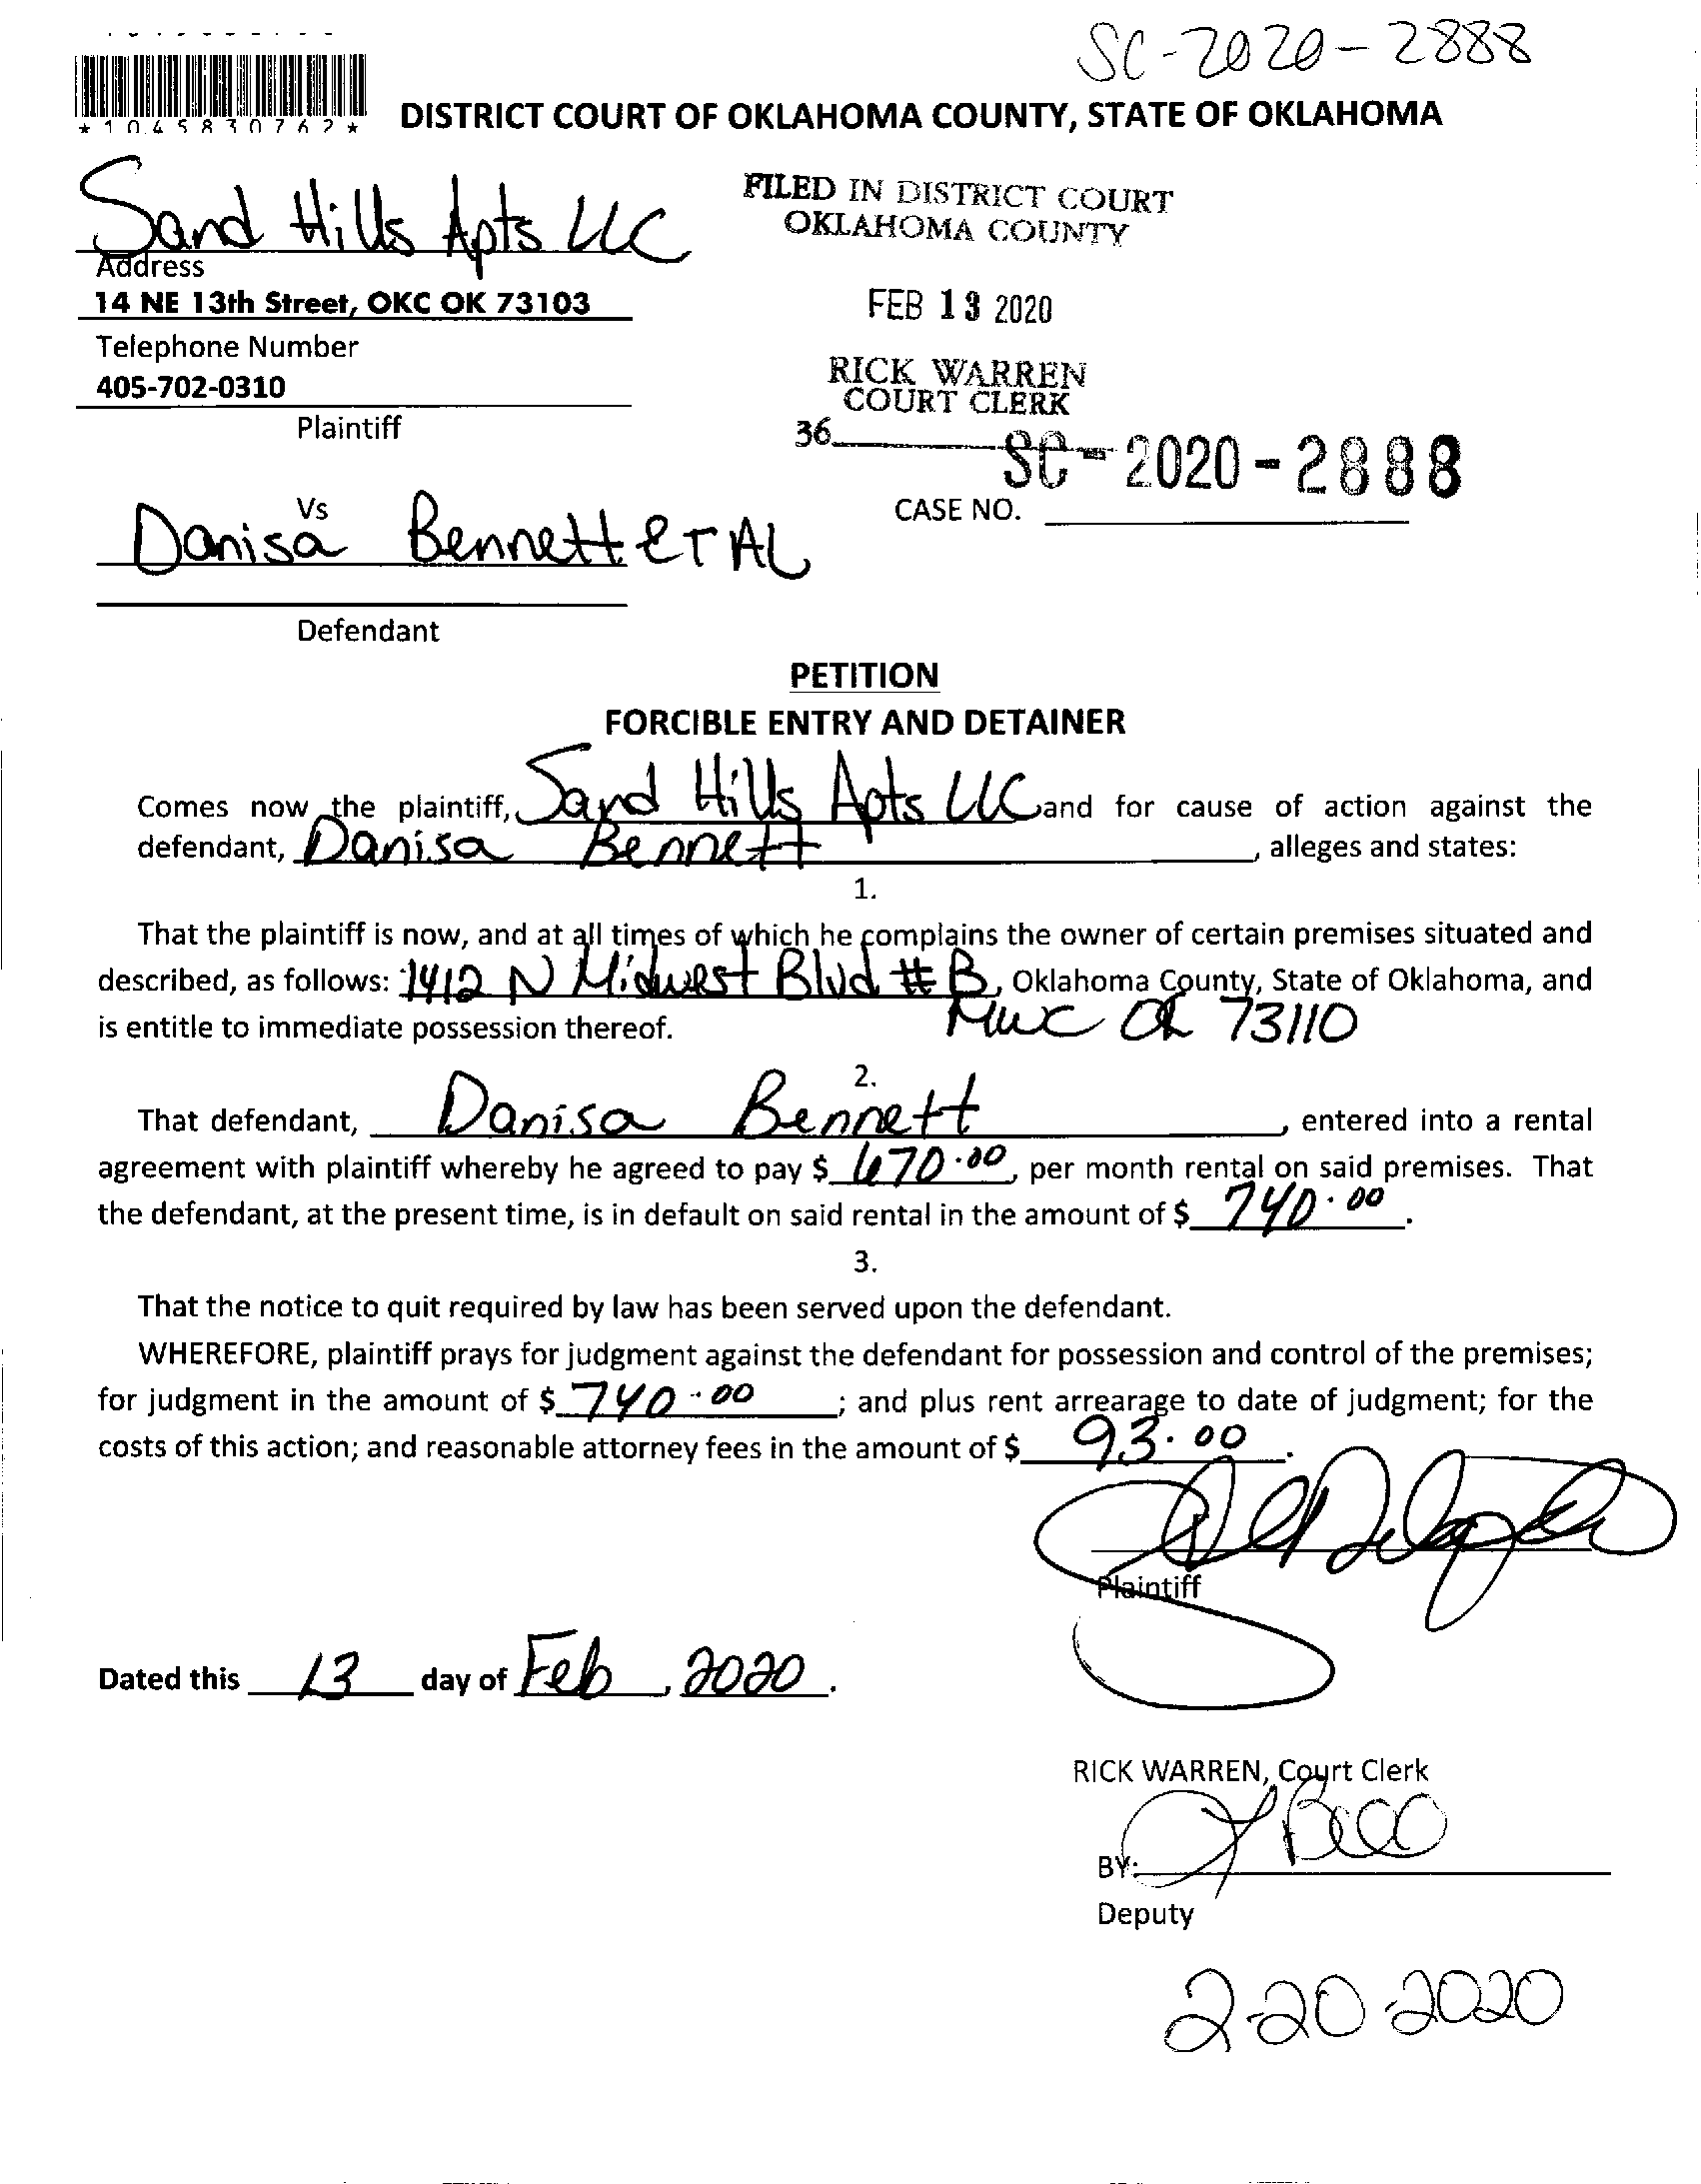 SC-2020-2888
*1045830762*
DISTRICT COURT OF OKLAHOMA COUNTY, STATE OF OKLAHOMA
Sand Hills Apts LLC
Address
14 NE 13th Street, OKC OK 73103
Telephone Number
405-702-0310
Plaintiff
FILED IN DISTRICT COURT
OKLAHOMA COUNTY
FEB 13 2020
RICK WARREN
COURT CLERK
36
SC-2020-2888
CASE NO.
Vs
Danisa Bennett ET AL
Defendant
PETITION
FORCIBLE ENTRY AND DETAINER
Comes now the plaintiff, Sand Hills Apts LLC and for cause of action against the
defendant, Danisa Bennett, alleges and states:
1.
That the plaintiff is now, and at all times of which he complains the owner of certain premises situated and
described, as follows: 1412 N Midwest Blvd # B, Oklahoma County, State of Oklahoma, and
is entitle to immediate possession thereof. MWC OK 73110
2.
That defendant, Danisa Bennett, entered into a rental
agreement with plaintiff whereby he agreed to pay $ 670.00, per month rental on said premises. That
the defendant, at the present time, is in default on said rental in the amount of $ 740.00.
3.
That the notice to quit required by law has been served upon the defendant.
WHEREFORE, plaintiff prays for judgment against the defendant for possession and control of the premises;
for judgment in the amount of $ 740.00; and plus rent arrearage to date of judgment; for the
costs of this action; and reasonable attorney fees in the amount of $ 93.00.
Plaintiff
Dated this 13 day of Feb, 2020.
RICK WARREN, Court Clerk
BY:
Deputy
2-20-2020